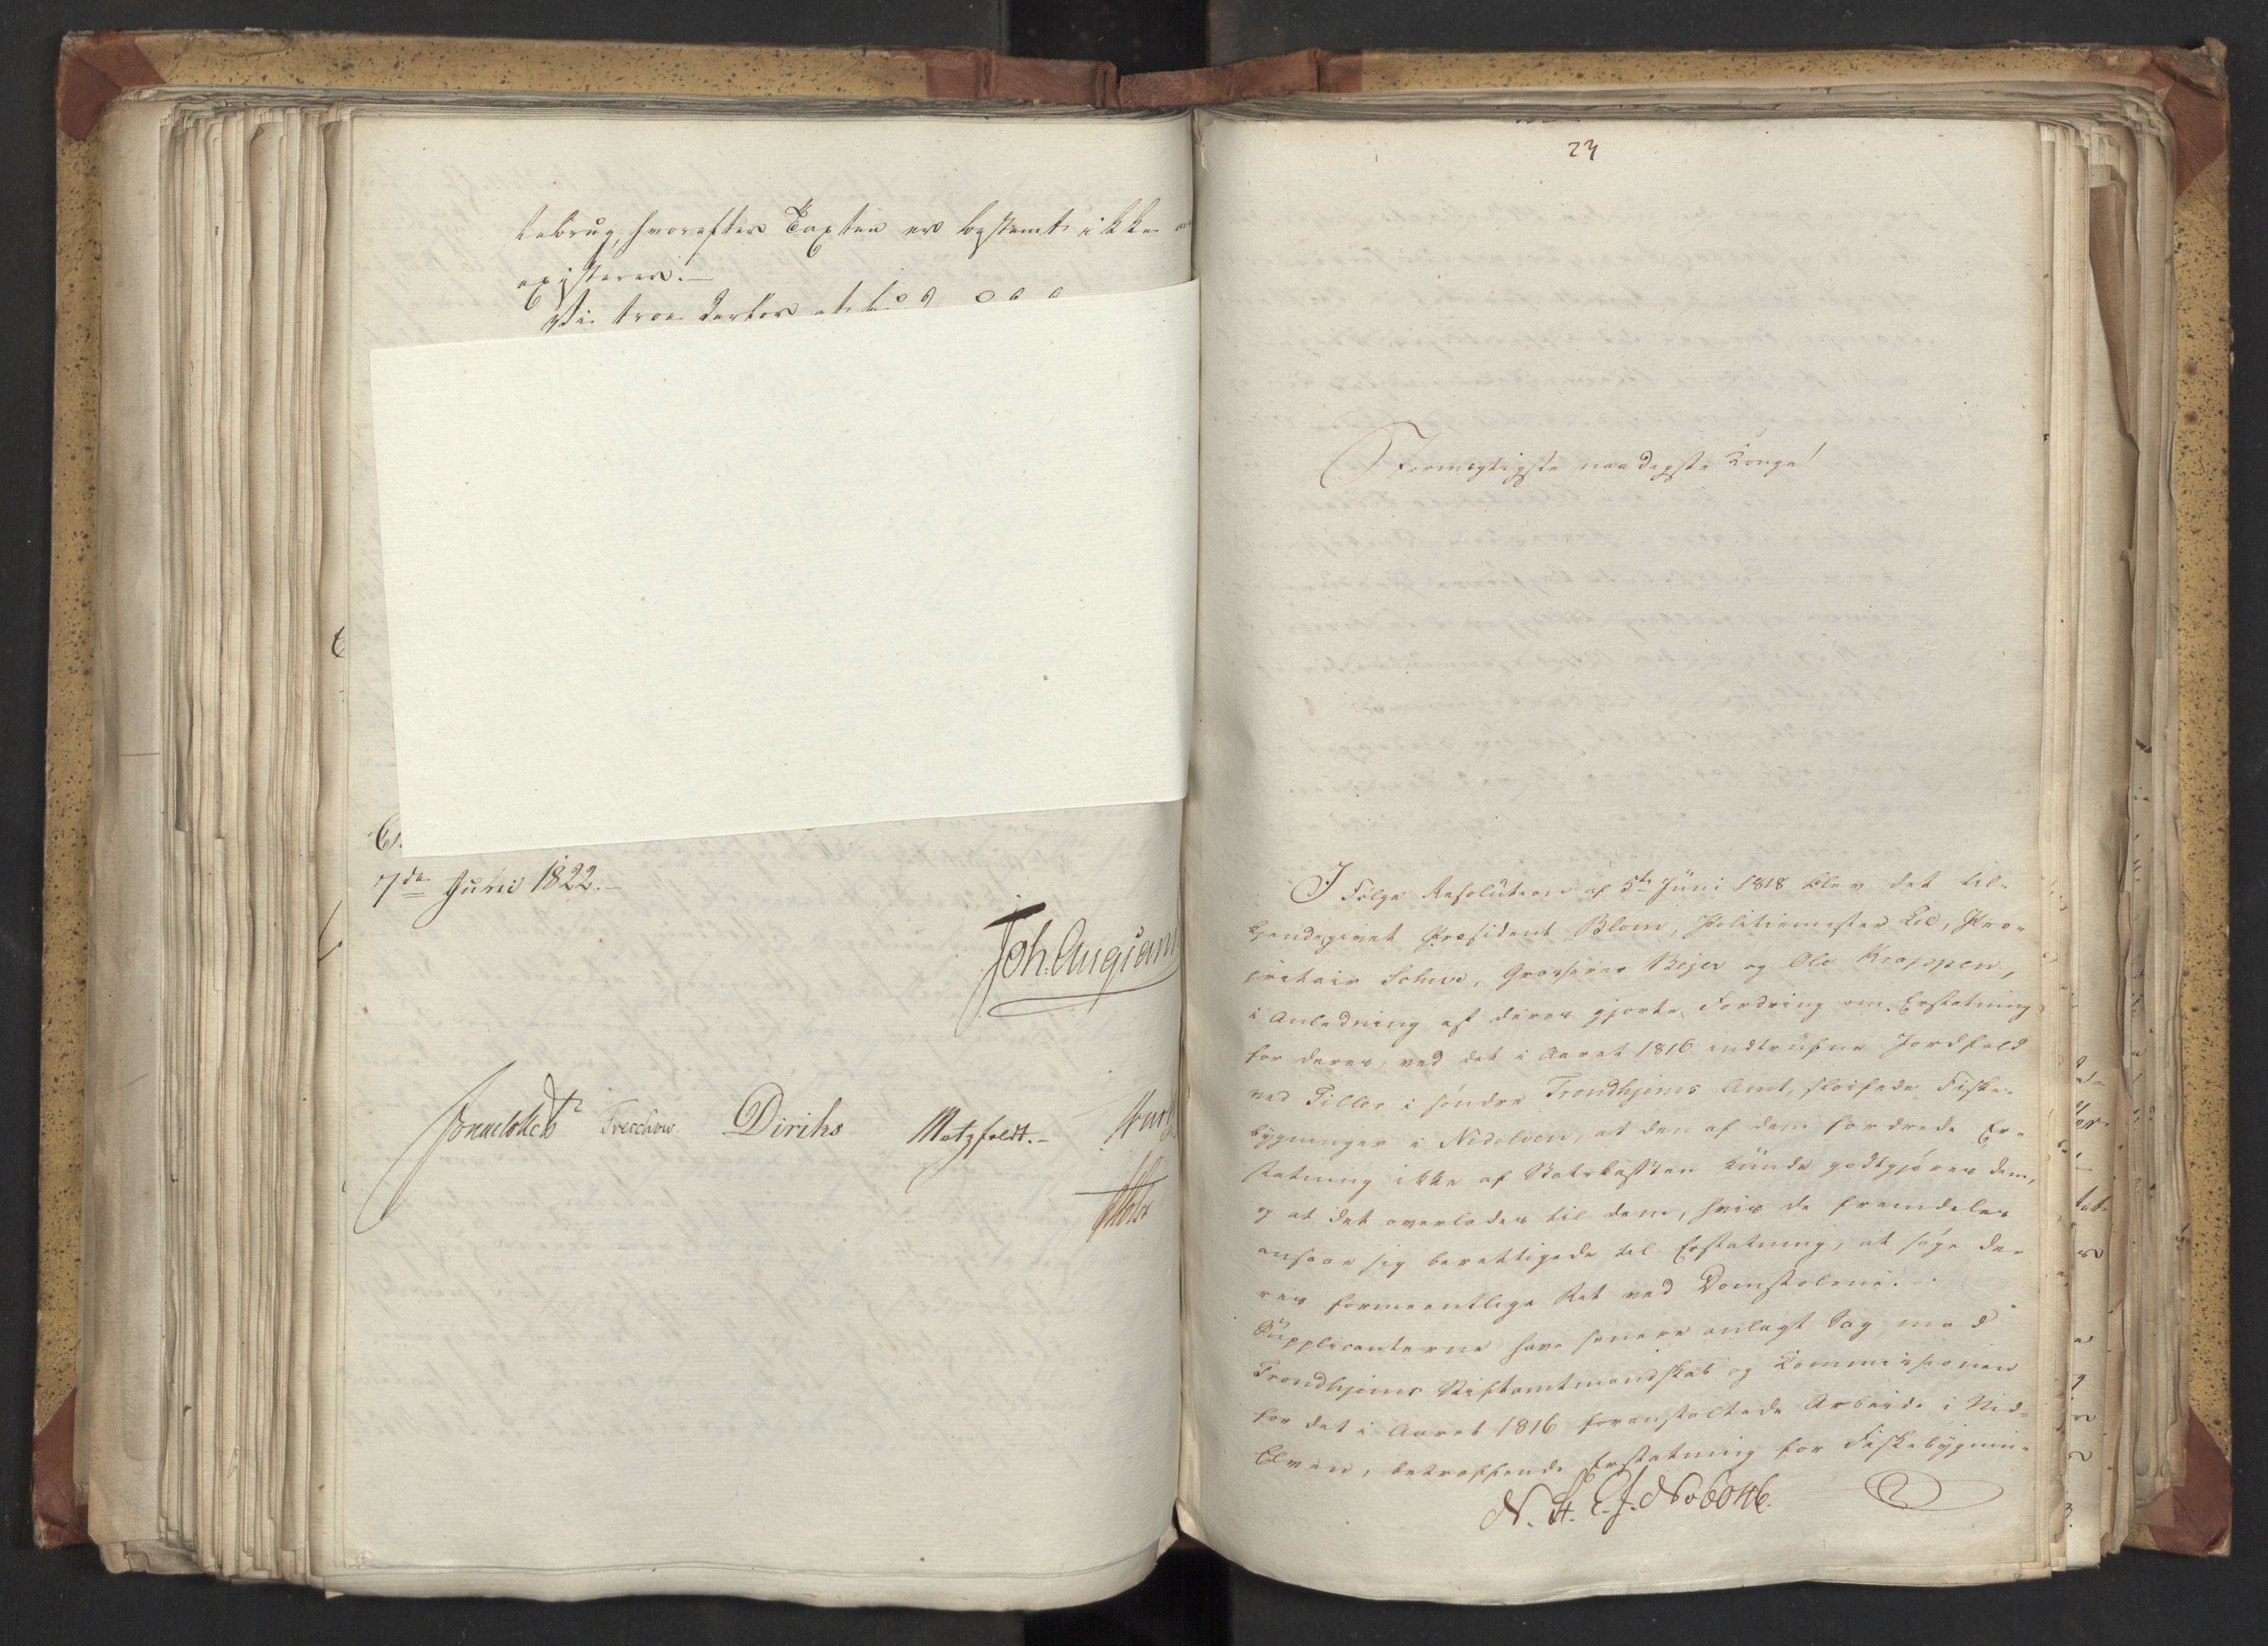 tebrug, hvorefter Taxten er bestemt ikke
existerer.—
Vi troe derfor at
7de Junii 1822.—
Joh. Aug. Sand
Sommelhielm Treschow Diriks Motzfeldt.—
Holst
23
Stormægtigste naadigste Konge!
I Følge Resolution af 5te Juni 1818 blev det til-
kjendegivet Præsident Blom, Politiemester Lie, Pro-
prietair Schive, Grosserer Bejer og Ole Kroppen,
i Anledning af deres gjorte Fordring om Erstatning
for deres, ved det i Aaret 1816 indtrufne Jordfald
ved Tiller i søndre Trondhjems Amt, sløifede Fiske-
bygninger i Nidelven, at den af dem fordrede Er-
statning ikke af Statskassen kunde godtgjøres dem,
og at det overlodes til dem, hvis de fremdeles
ansaae sig berettigede til Erstatning, at søge de-
res formeentlige Ret ved Domstolene.
Supplicanterne have senere anlagt Sag mod
Trondhjems Stiftamtmandskab og Commissionen
for det i Aaret 1816 foranstaltede Arbeide i Nid-
Elven, betræffende Erstatning for Fiskebygnin-
N. St. E. J. No 60